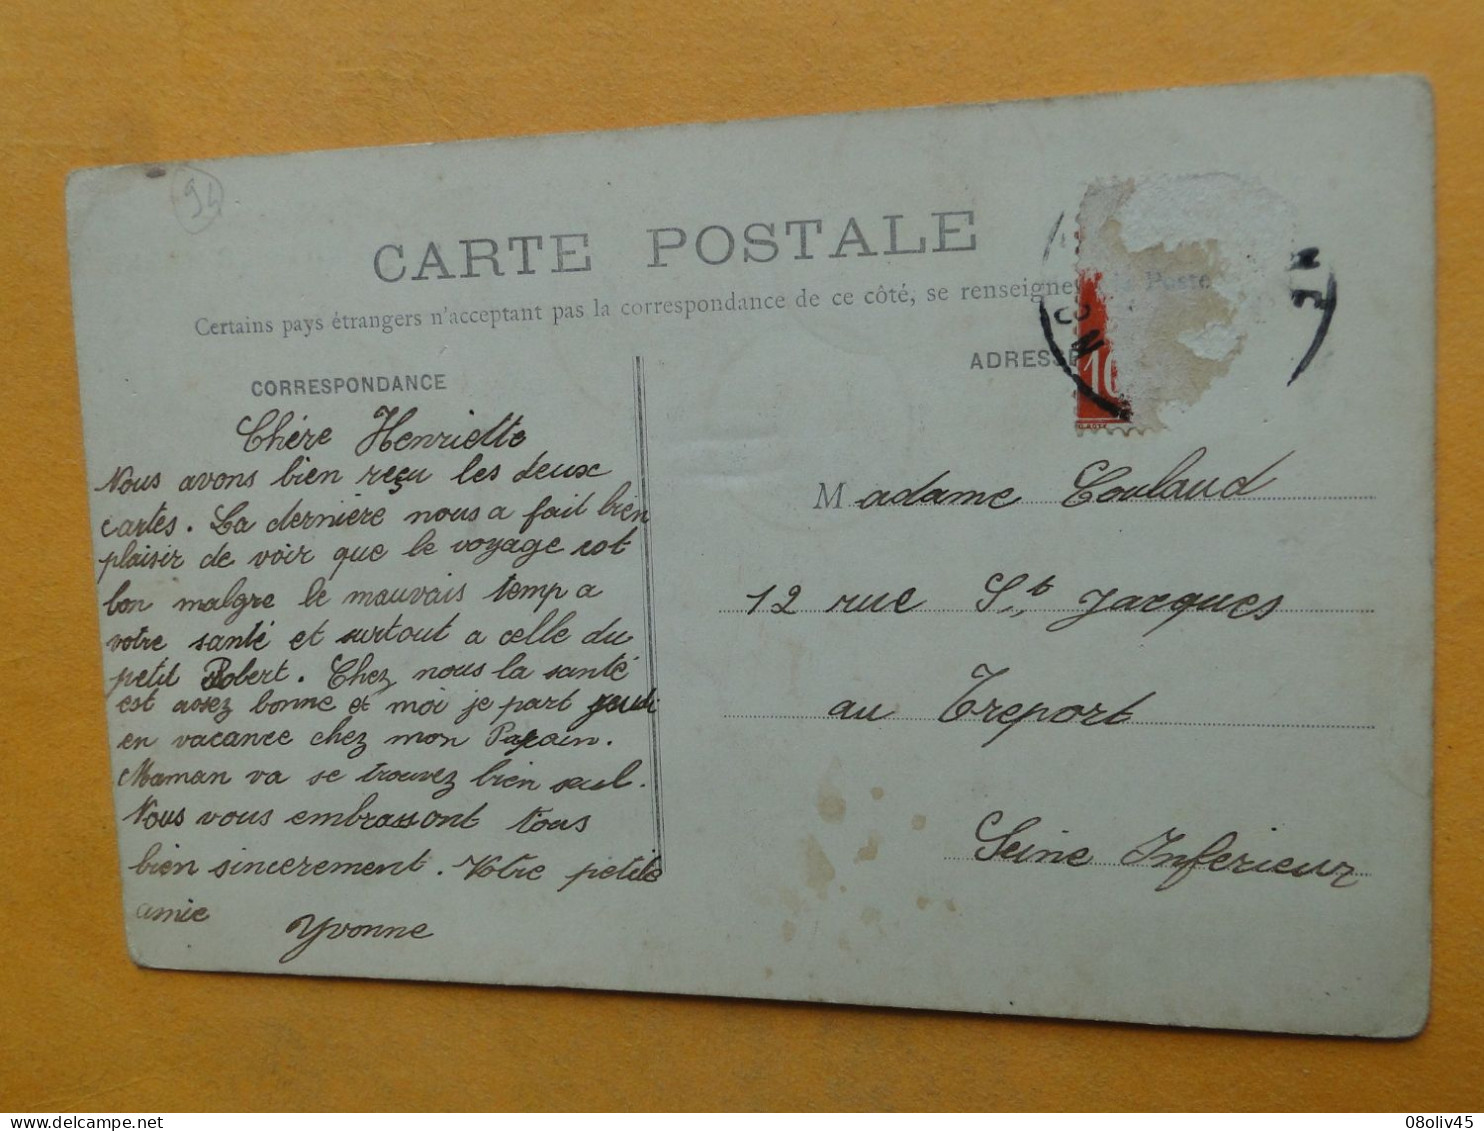 94
CARTE POSTALE
Certains pays étrangers n'acceptant pas la correspondance de ce côté, se renseigner à la Poste
CORRESPONDANCE
Chére Henriette
Nous avons bien reçu les deux
cartes. La derniére nous a fait bien
plaisir de voir que le voyage est
bon malgre le mauvais temp a
votre santé et surtout a celle du
petit Robert. Chez nous la santé
est assez bonne et moi je part jeudi
en vacance chez mon Parain.
Maman va se trouvez bien seul.
Nous vous embrassont tous
bien sincerement. Votre petite
amie
Yvonne
ADRESSE
10
Madame Coulaud
12 rue St Jacques
au Treport
Seine Inferieur
08oliv45